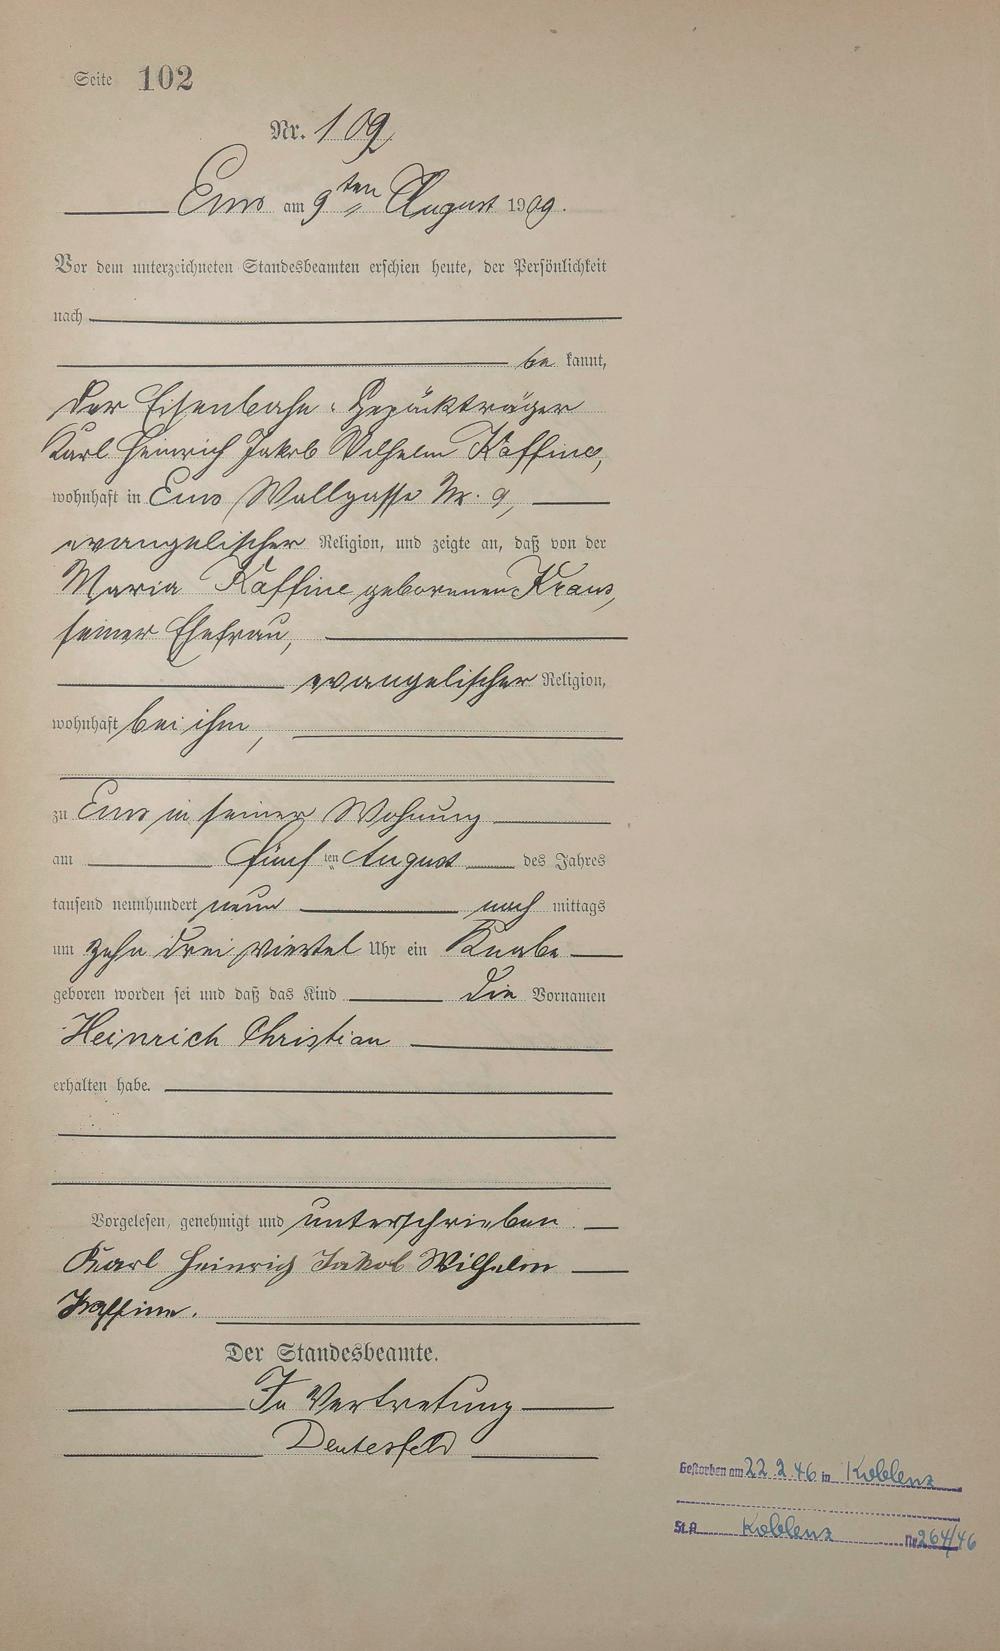 Seite 102
Nr. 109
Ems am 9ten August 1909.
Vor dem unterzeichneten Standesbeamten erschien heute, der Persönlichkeit
nach
be kannt,
der Eisenbahn-Gepäckträger
Karl Heinrich Jakob Wilhelm Kaffine,
wohnhaft in Ems Wallgasse Nr. 9,
evangelischer Religion, und zeigte an, daß von der
Maria Kaffine geborenen Kraus,
seiner Ehefrau,
evangelischer Religion,
wohnhaft bei ihm,
zu Ems in seiner Wohnung
am fünf ten August des Jahres
tausend neunhundert neun nach mittags
um zehn drei viertel Uhr ein Knabe
geboren worden sei und daß das Kind die Vornamen
Heinrich Christian
erhalten habe.
Vorgelesen, genehmigt und unterschrieben
Karl Heinrich Jakob Wilhelm
Kaffine.
Der Standesbeamte.
In Vertretung
Deutesfeld
Gestorben am 22.2.46 in Koblenz
St.A. Koblenz Nr. 264/46